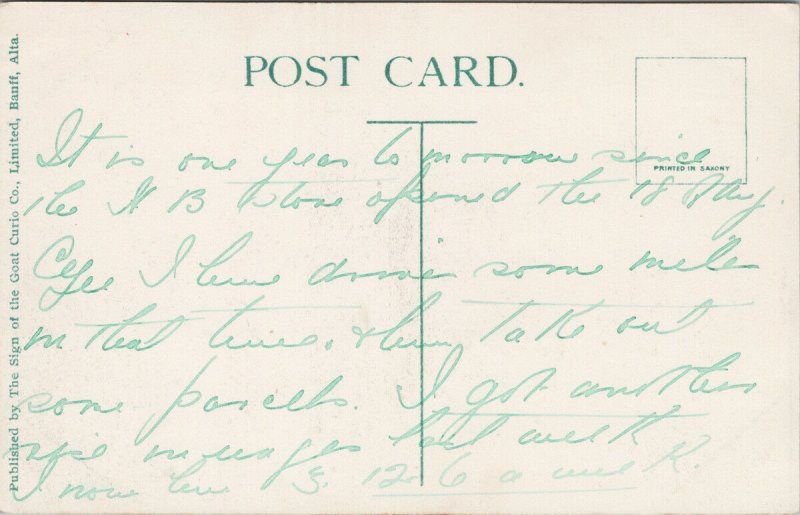 POST CARD.
PRINTED IN SAXONY
Published by The Sign of the Goat Curio Co., Limited, Banff, Alta.
It is one year to morrow since
the H B store opened the 18 Aug.
I have driven some miles
in that time, & have take out
some parcels. I got another
rise in wages last week
I now have 3. 12. 6 a week.